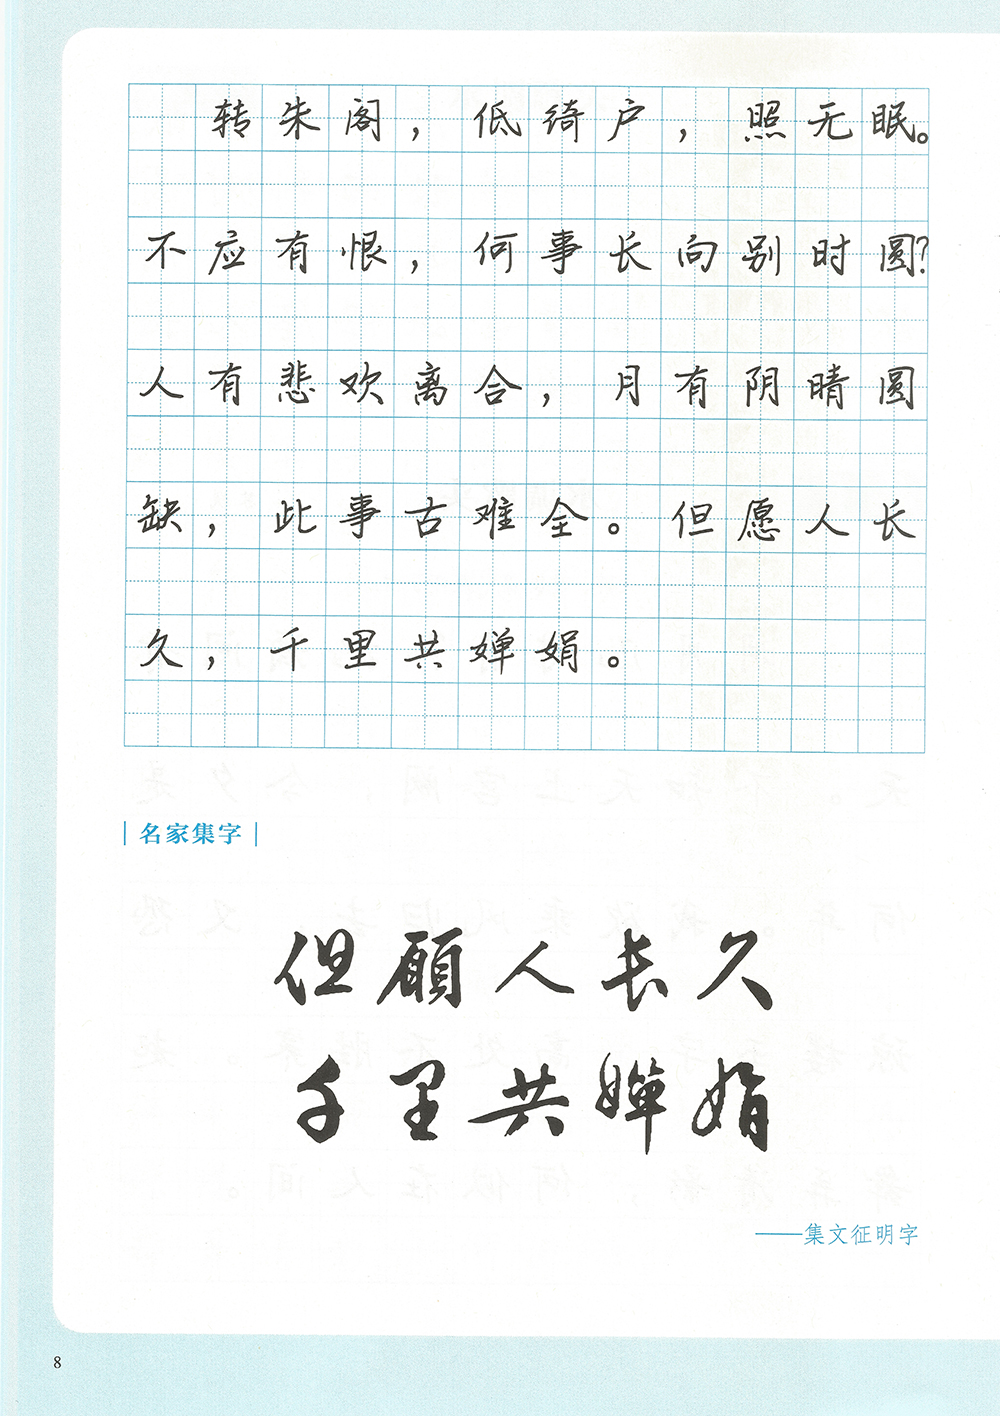 转朱阁，低绮户，照无眠。
不应有恨，何事长向别时圆？
人有悲欢离合，月有阴晴圆
缺，此事古难全。但愿人长
久，千里共婵娟。
名家集字
但願人長久
千里共嬋娟
——集文征明字
8